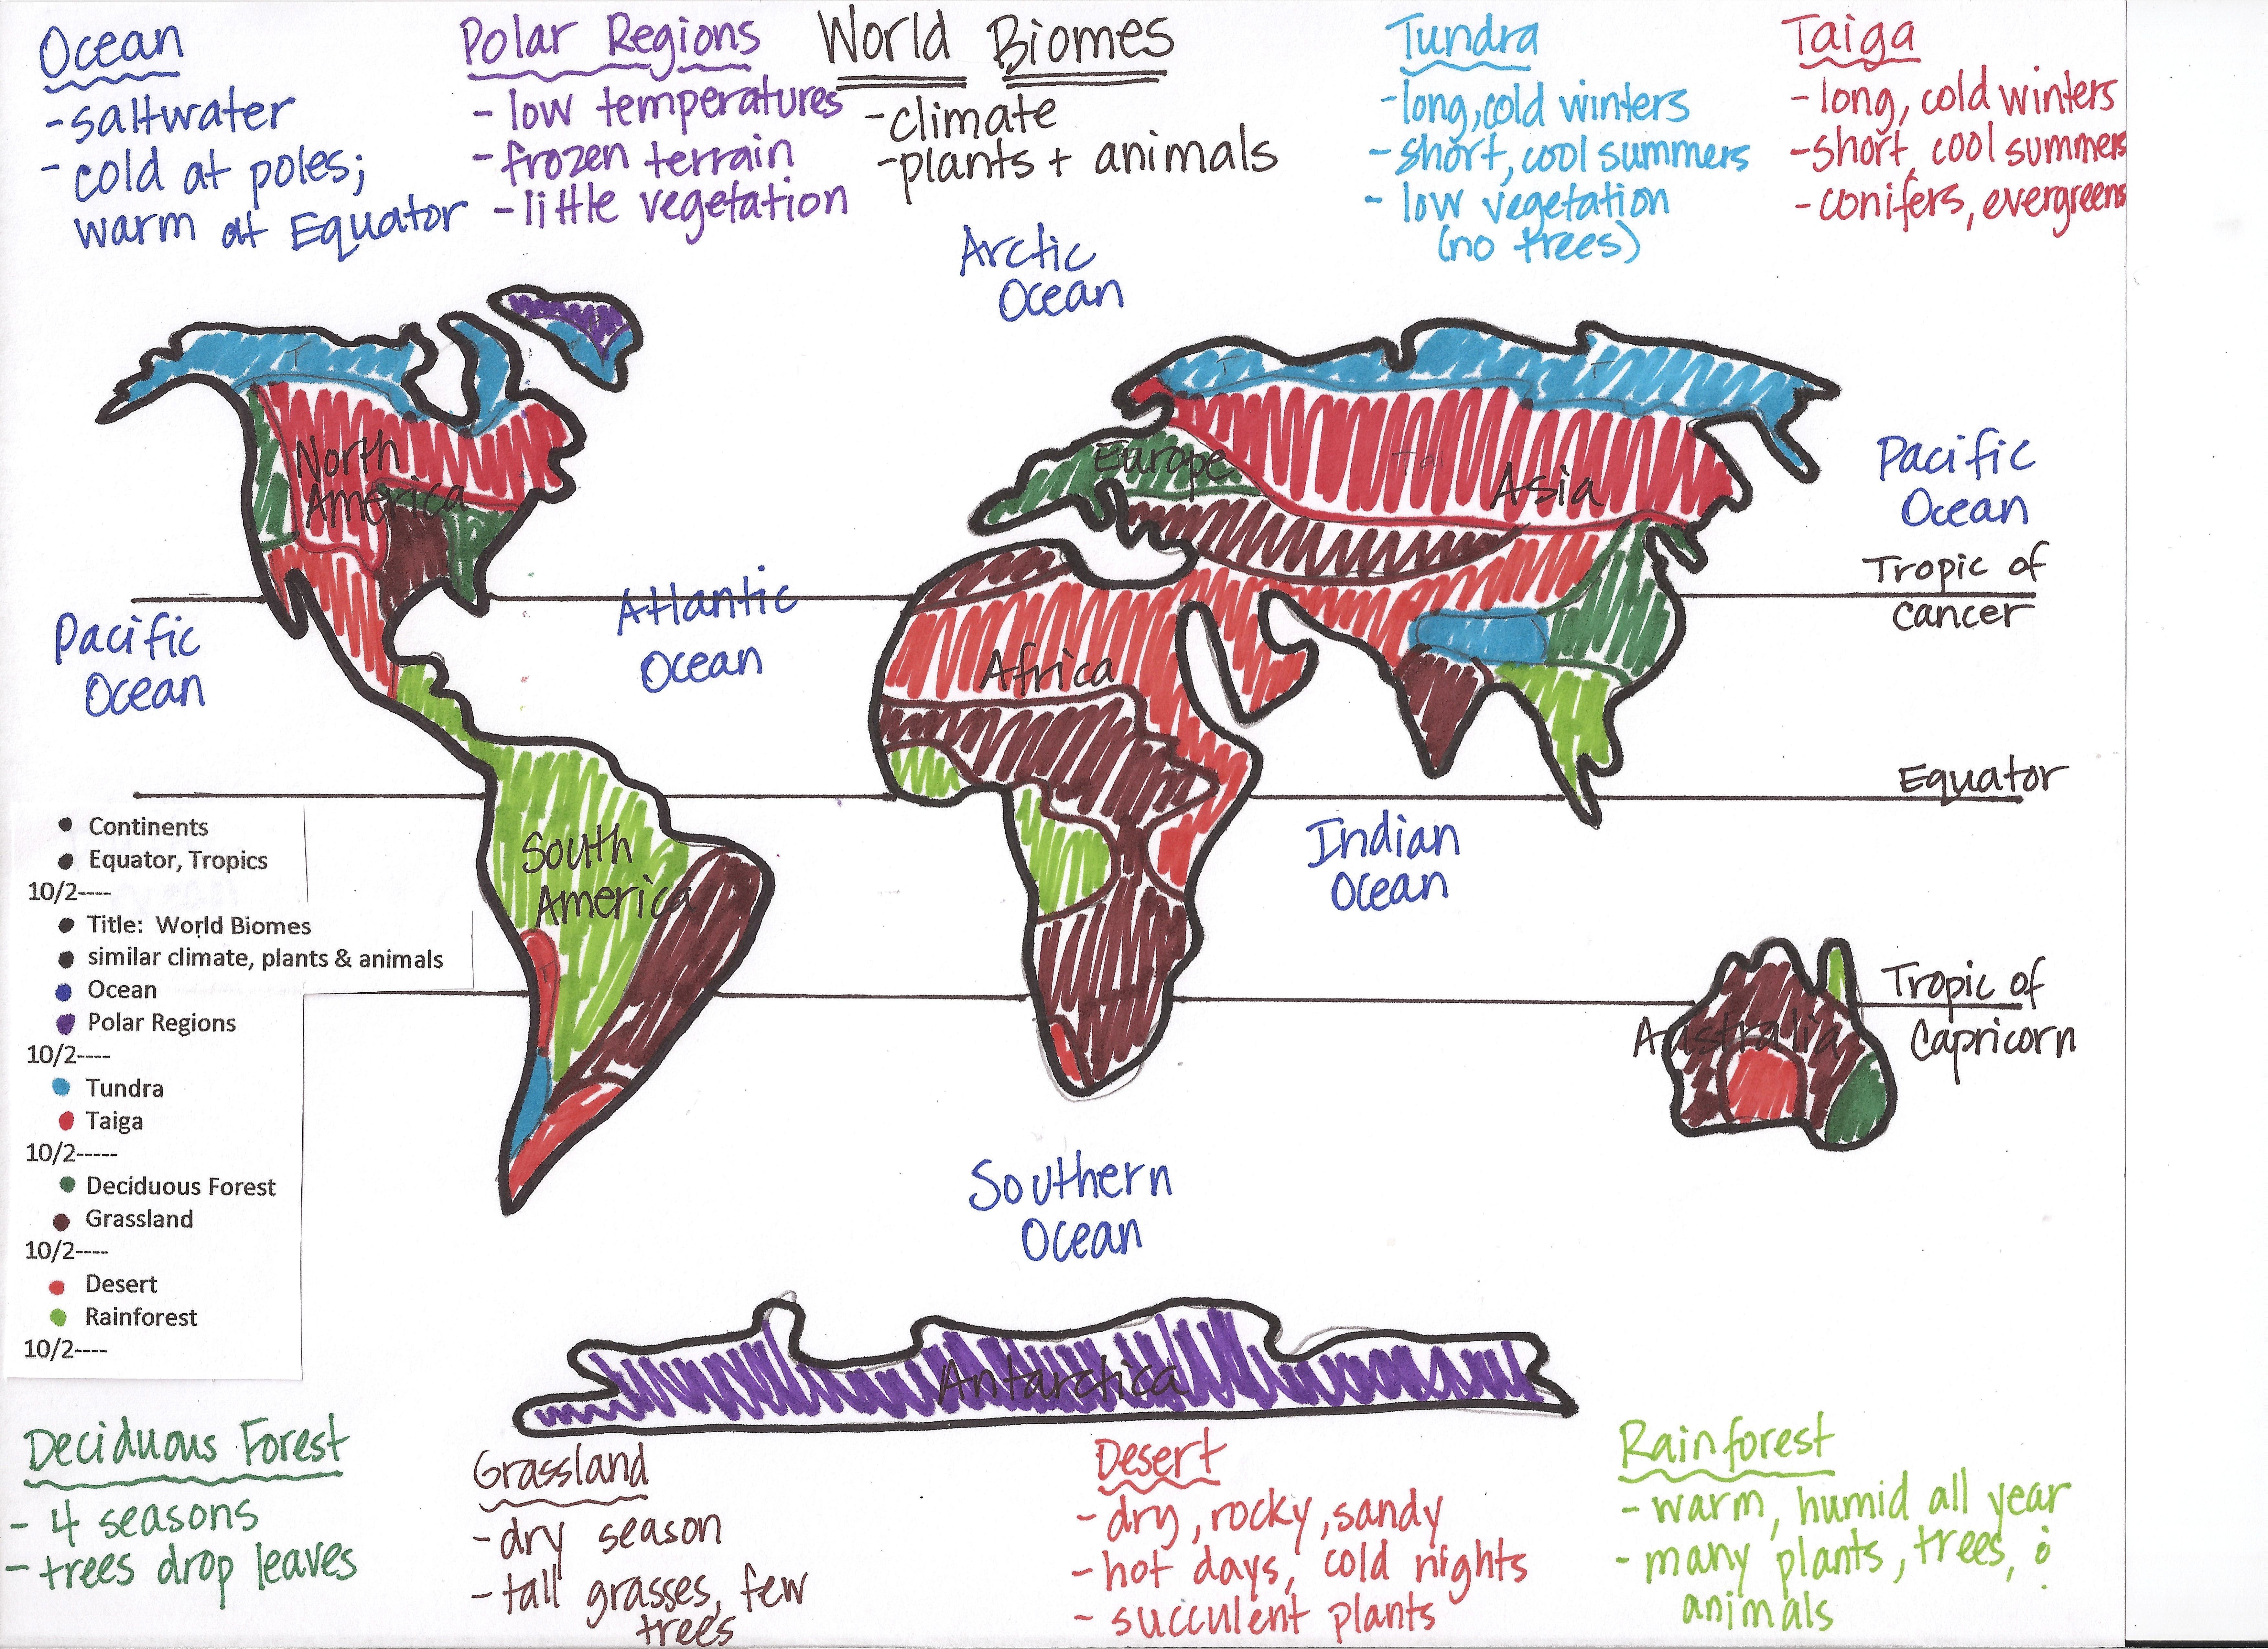 Ocean
-saltwater
- cold at poles;
warm at Equator
Polar Regions
- low temperatures
- frozen terrain
- little vegetation
World Biomes
-climate
-plants + animals
Tundra
-long, cold winters
- short, cool summers
- low vegetation
(no trees)
Taiga
- long, cold winters
-short, cool summers
- conifers, evergreens
Arctic
Ocean
T
T
T
North
America
Europe
Tai
Asia
Pacific
Ocean
Tropic of
Cancer
Atlantic
Ocean
Pacific
Ocean
Africa
Equator
Indian
Ocean
South
America
Tropic of
Capricorn
Australia
• Continents
• Equator, Tropics
10/2----
• Title: World Biomes
• similar climate, plants & animals
• Ocean
• Polar Regions
10/2----
• Tundra
• Taiga
10/2-----
• Deciduous Forest
• Grassland
10/2----
• Desert
• Rainforest
10/2----
Southern
Ocean
Antarctica
Deciduous Forest
- 4 seasons
- trees drop leaves
Grassland
- dry season
- tall grasses, few
trees
Desert
- dry, rocky, sandy
- hot days, cold nights
- succulent plants
Rainforest
- warm, humid all year
- many plants, trees, &
animals